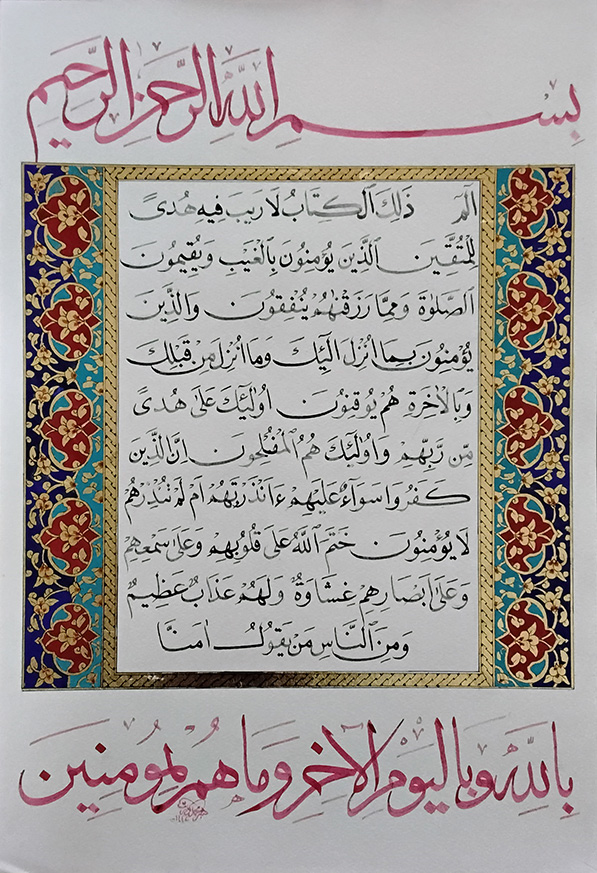 بِسْمِ اللَّهِ الرَّحْمَٰنِ الرَّحِيمِ
الٓمٓ ذَٰلِكَ الْكِتَابُ لَا رَيْبَ فِيهِ هُدًى
لِلْمُتَّقِينَ الَّذِينَ يُؤْمِنُونَ بِالْغَيْبِ وَيُقِيمُونَ
الصَّلٰوةَ وَمِمَّا رَزَقْنَاهُمْ يُنْفِقُونَ وَالَّذِينَ
يُؤْمِنُونَ بِمَا أُنْزِلَ إِلَيْكَ وَمَا أُنْزِلَ مِنْ قَبْلِكَ
وَبِالْآخِرَةِ هُمْ يُوقِنُونَ أُولَٰئِكَ عَلَىٰ هُدًى
مِنْ رَبِّهِمْ وَأُولَٰئِكَ هُمُ الْمُفْلِحُونَ إِنَّ الَّذِينَ
كَفَرُوا سَوَاءٌ عَلَيْهِمْ ءَأَنْذَرْتَهُمْ أَمْ لَمْ تُنْذِرْهُمْ
لَا يُؤْمِنُونَ خَتَمَ اللَّهُ عَلَىٰ قُلُوبِهِمْ وَعَلَىٰ سَمْعِهِمْ
وَعَلَىٰ أَبْصَارِهِمْ غِشَاوَةٌ وَلَهُمْ عَذَابٌ عَظِيمٌ
وَمِنَ النَّاسِ مَنْ يَقُولُ اٰمَنَّا
بِاللَّهِ وَبِالْيَوْمِ الْآخِرِ وَمَا هُمْ بِمُؤْمِنِينَ